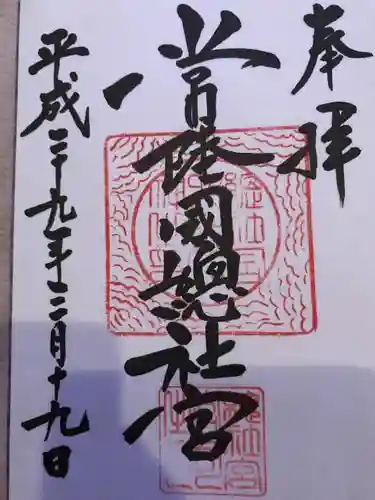 奉拝
常陸國總社宮
平成二十九年三月十九日